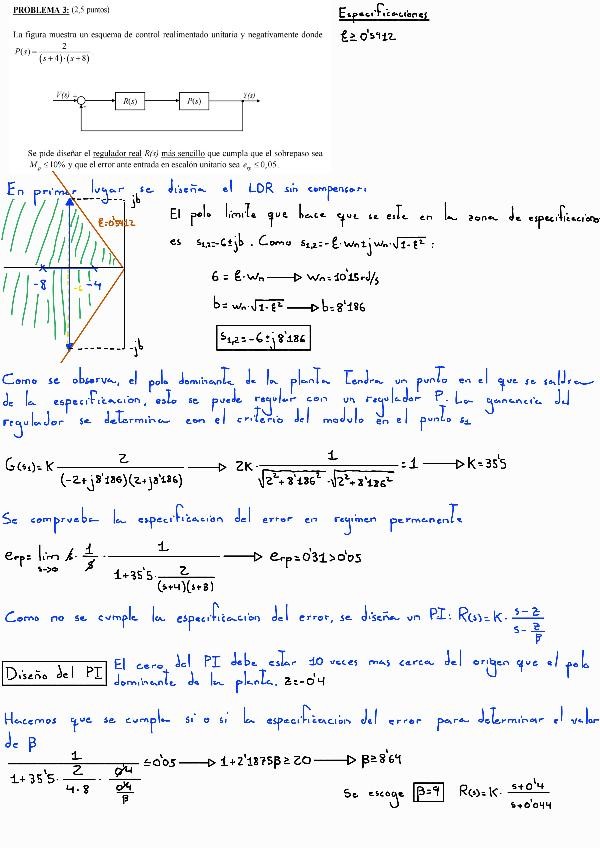 PROBLEMA 3: (2,5 puntos)
Especificaciones
ξ ≥ 0'5912
La figura muestra un esquema de control realimentado unitaria y negativamente donde
P(s) = 2 / (s+4)·(s+8)
V(s) R(s) P(s) Y(s)
Se pide diseñar el regulador real R(s) más sencillo que cumpla que el sobrepaso sea
Mp ≤ 10% y que el error ante entrada en escalón unitario sea erp ≤ 0,05.
En primer lugar se diseña el LDR sin compensar:
jb
ξ=0'5912
-8 -6 -4
-jb
El polo limite que hace que se este en la zona de especificaciones
es s1,2=-6±jb. Como s1,2=-ξ·wn±jwn·√1-ξ² :
6 = ξ·wn → wn=10'15 rd/s
b = wn·√1-ξ² → b=8'186
s1,2=-6±j8'186
Como se observa, el polo dominante de la planta tendra un punto en el que se saldra
de la especificacion, esto se puede regular con un regulador P. La ganancia del
regulador se determina con el criterio del modulo en el punto s1
G(s1)=K 2 / (-2+j8'186)(2+j8'186) → 2K · 1 / √2²+8'186² · √2²+8'186² = 1 → K=35'5
Se comprueba la especificacion del error en regimen permanente
erp= lim s→0 s · 1/s · 1 / 1+35'5 · 2/(s+4)(s+8) → erp=0'31>0'05
Como no se cumple la especificacion del error, se diseña un PI: R(s)=K· s-z / s-z/β
Diseño del PI
El cero del PI debe estar 10 veces mas cerca del origen que el polo
dominante de la planta. z=-0'4
Hacemos que se cumpla si o si la especificacion del error para determinar el valor
de β
1 / 1+35'5 · 2/4·8 · 0'4 / 0'4/β ≤ 0'05 → 1+2'1875β ≥ 20 → β ≥ 8'69
Se escoge β=9 R(s)=K· s+0'4 / s+0'044